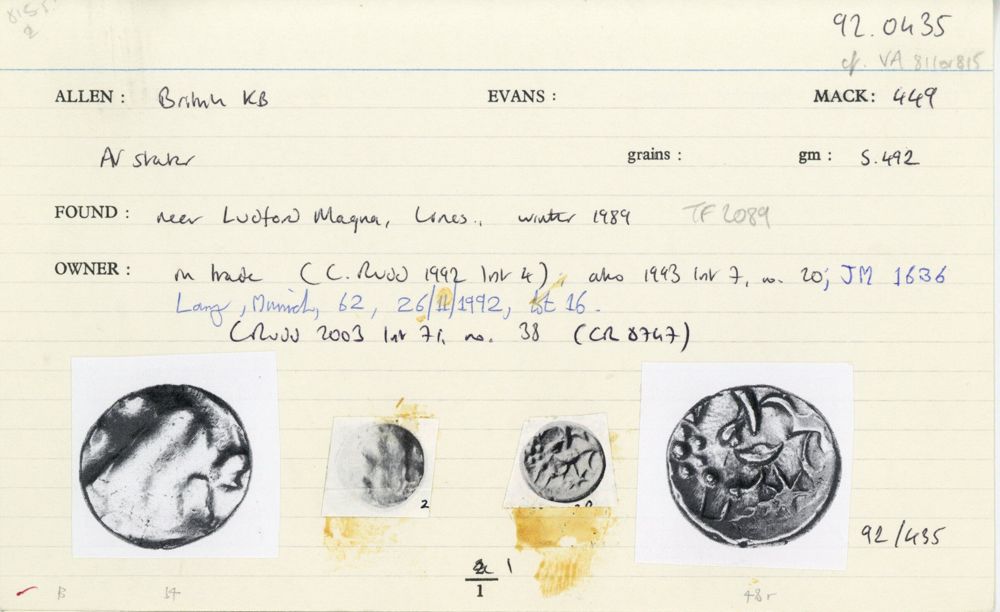 8155
2
92.0435
cf. VA 811 or 815
ALLEN : British KB EVANS : MACK: 449
AV stater grains : gm : 5.492
FOUND : near Ludford Magna, Lincs., winter 1989 TF 2089
OWNER : in trade (C. Rudd 1992 list 4); also 1993 list 7, no. 20; JM 1636
Lanz, Munich, 62, 26/11/1992, lot 16.
CRudd 2003 list 71, no. 38 (CR 8747)
2
92/435
1
1
B 14 48 r